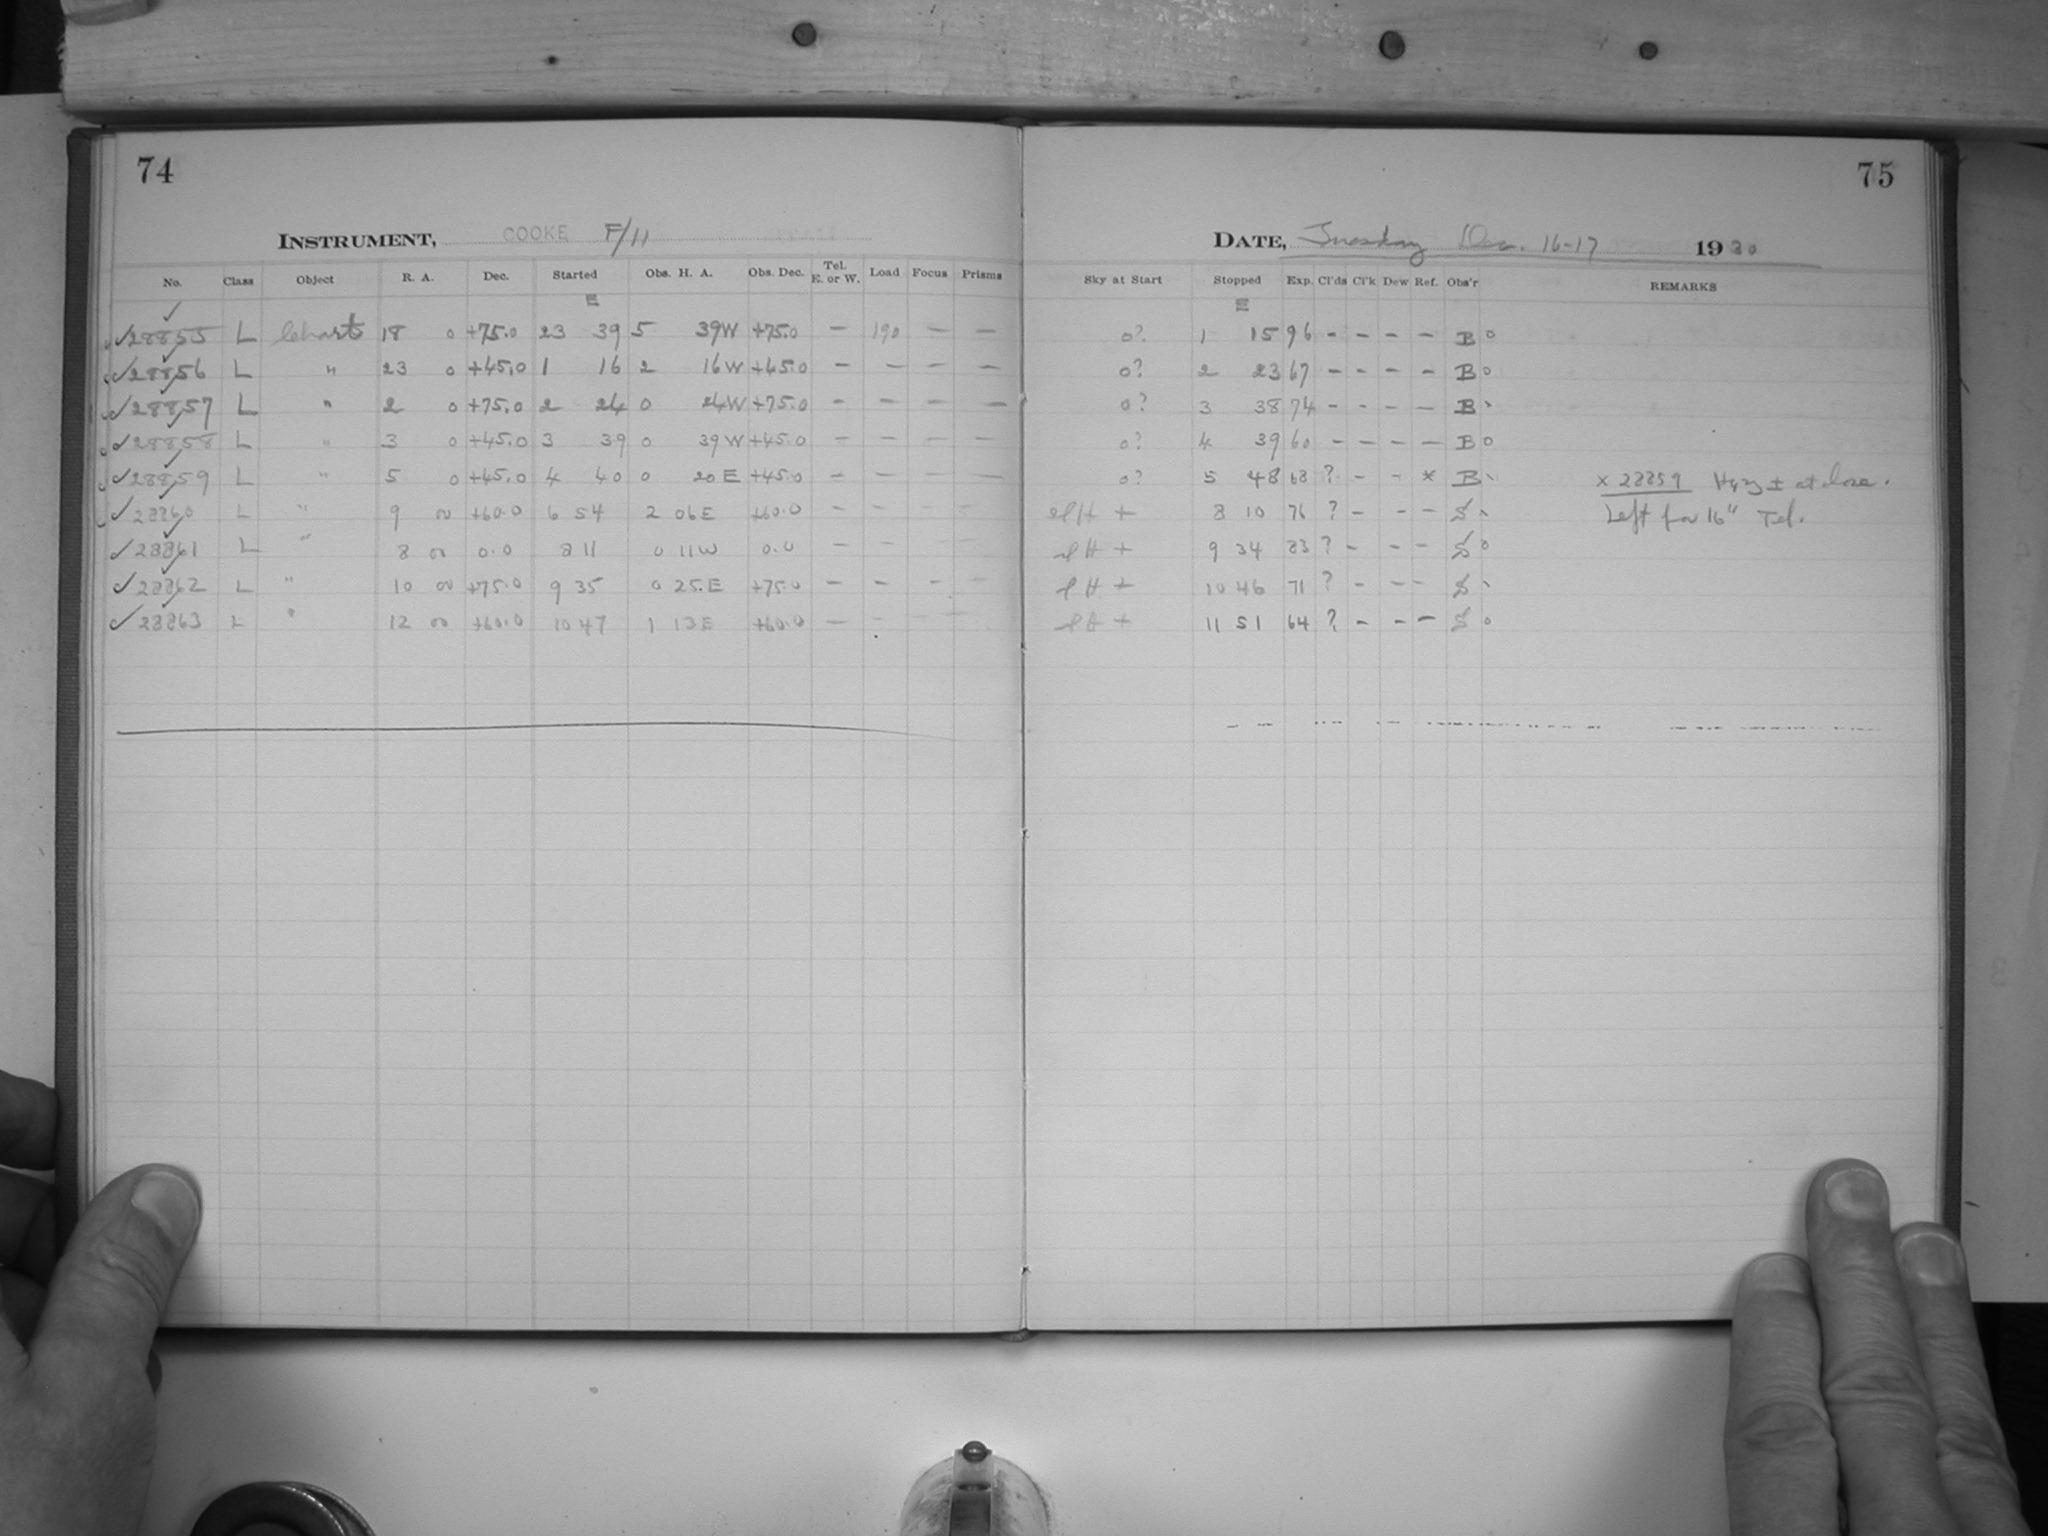 74
75
INSTRUMENT, COOKE F/11
DATE, Tuesday Dec. 16-17 1930
No. Class Object R. A. Dec. Started Obs. H. A. Obs. Dec. Tel. E. or W. Load Focus Prisms Sky at Start Stopped Exp. Cl'ds Cl'k Dew Ref. Obs'r REMARKS
E E
✓28855 L Chart 18 0 +75.0 23 39 5 39W +75.0 – 190 – – 0? 1 15 96 – – – – B o
✓28856 L " 23 0 +45.0 1 16 2 16W +45.0 – – – – 0? 2 23 67 – – – – B o
✓28857 L " 2 0 +75.0 2 24 0 24W +75.0 – – – – 0? 3 38 74 – – – – B
✓28858 L " 3 0 +45.0 3 39 0 39W +45.0 – – – – 0? 4 39 60 – – – – B o
✓28859 L " 5 0 +45.0 4 40 0 20E +45.0 – – – – 0? 5 48 68 ? – – * B x 28859 Hazy ± at close.
✓28860 L " 9 00 +60.0 6 54 2 06E +60.0 – – – – slH + 8 10 76 ? – – – S Left for 16" Tel.
✓28861 L " 8 00 0.0 8 11 0 11W 0.0 – – – – slH + 9 34 83 ? – – – S o
✓28862 L " 10 00 +75.0 9 35 0 25E +75.0 – – – – slH + 10 46 71 ? – – – S
✓28863 L " 12 00 +60.0 10 47 1 13E +60.0 – – – – slH + 11 51 64 ? – – – S o